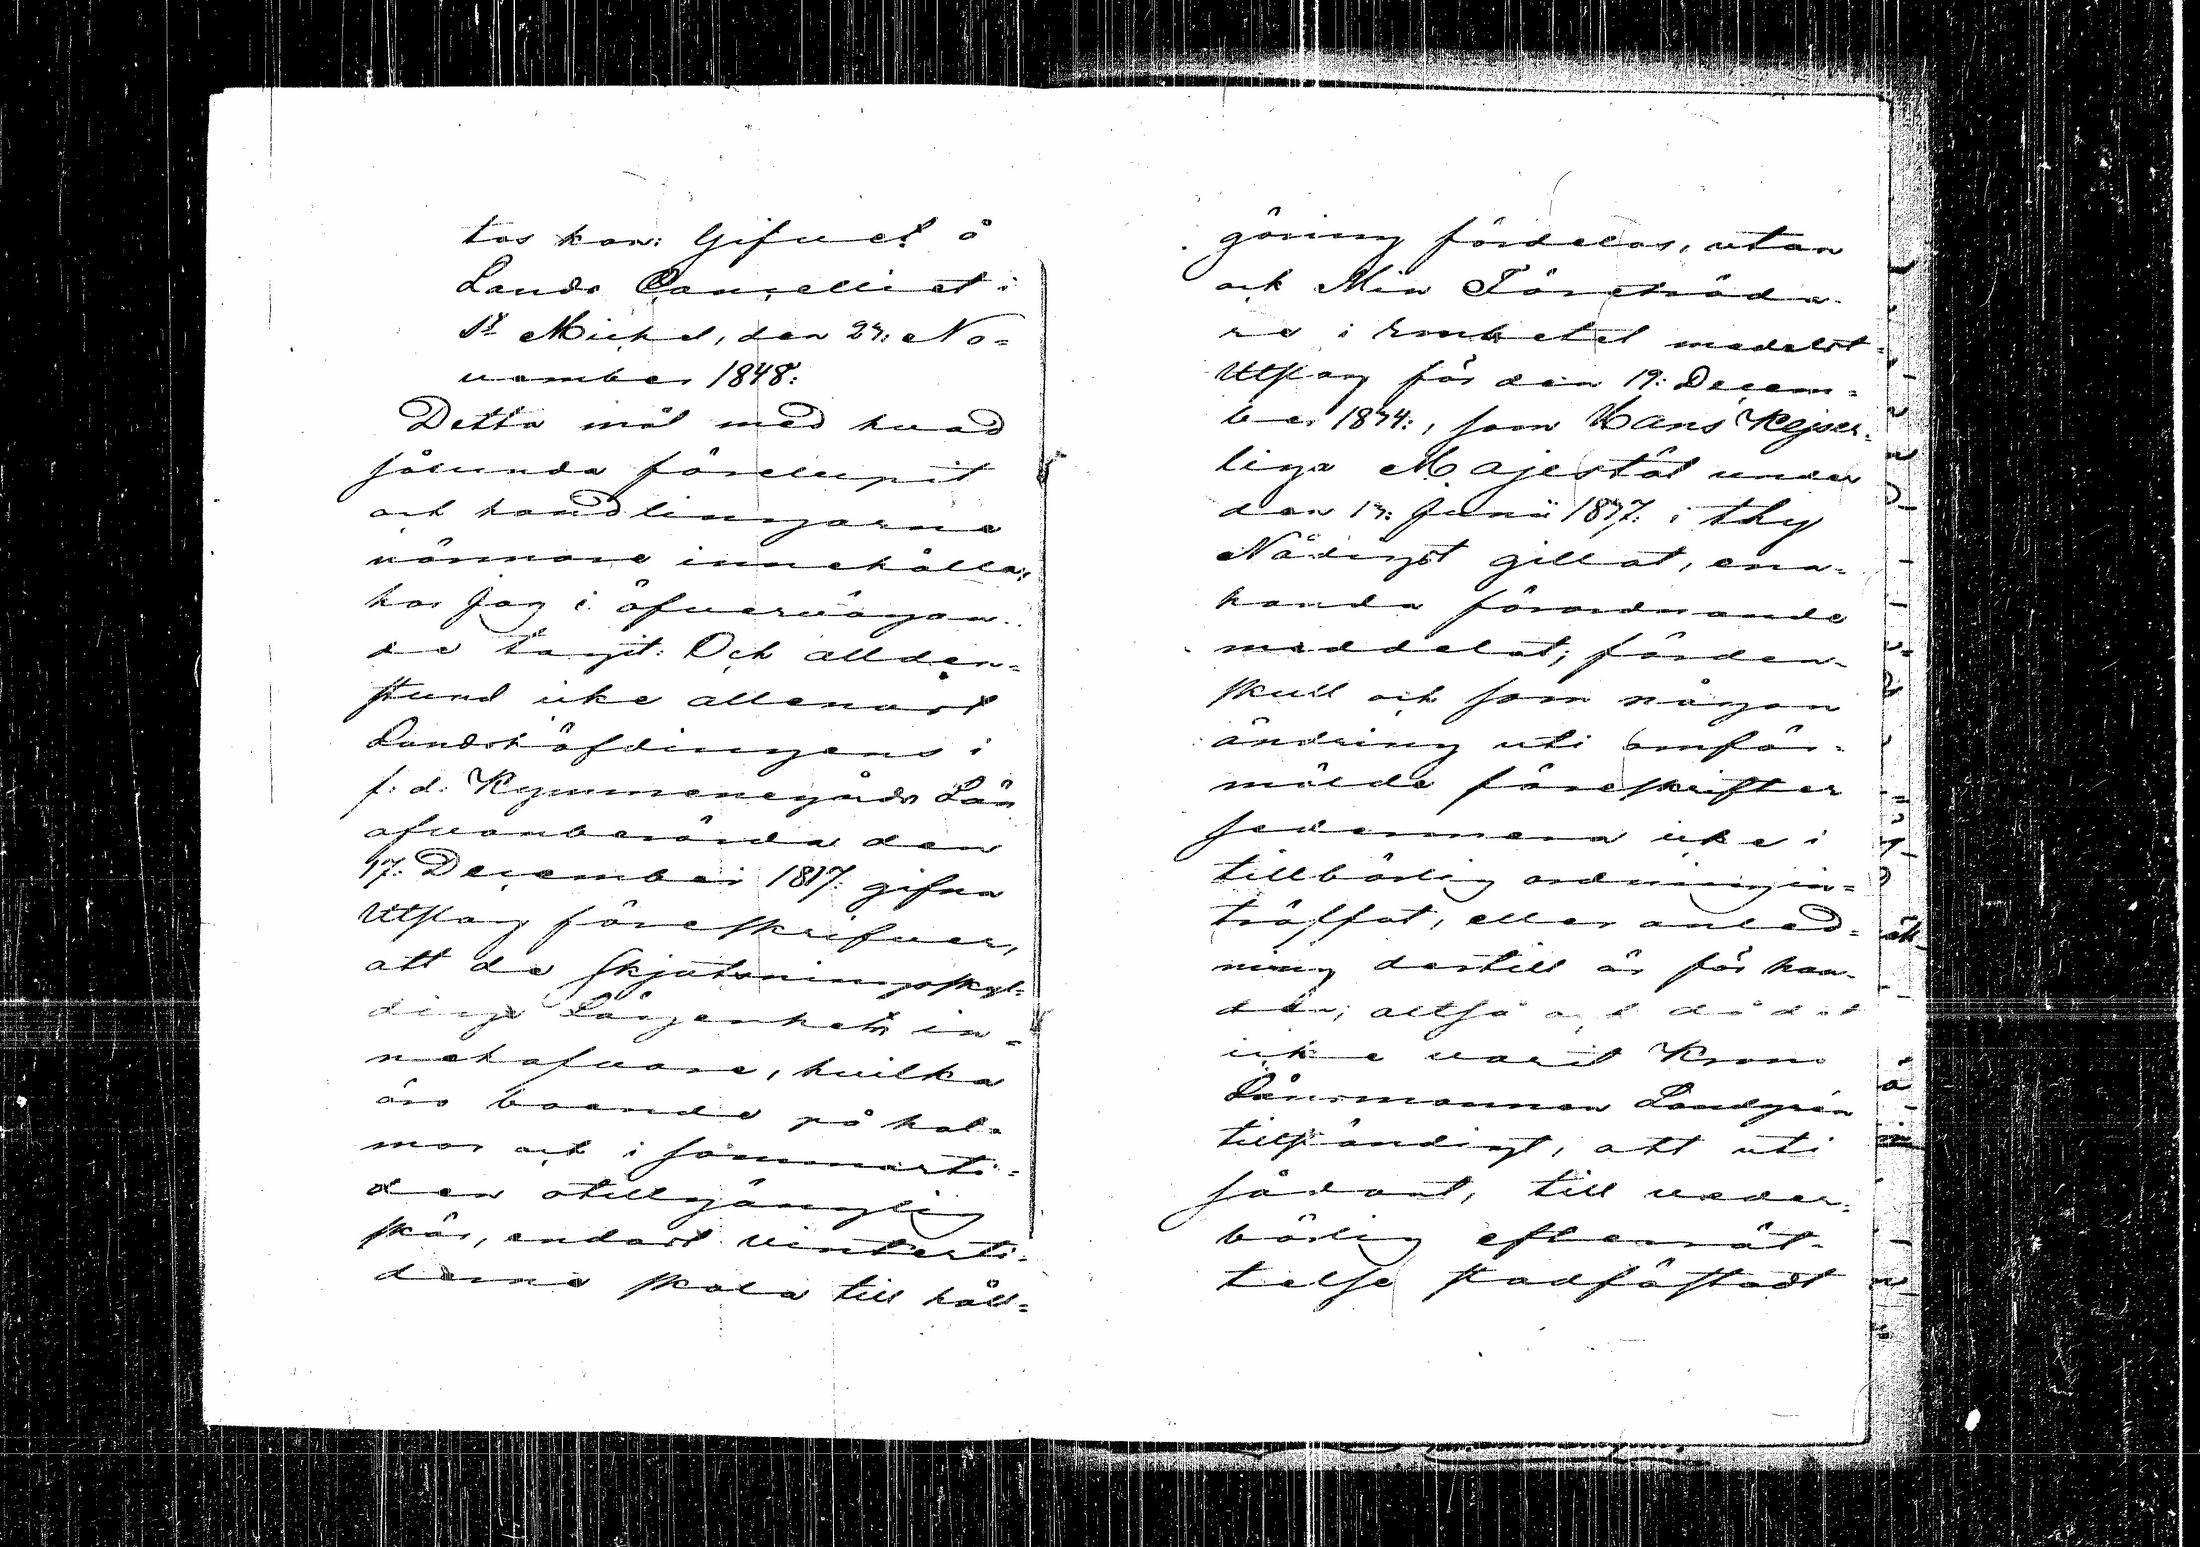 tas kan: Gifvet å
Lands Cancelliet i
St Michel, den 27: No=
vember 1848:
Detta mål med hvad
sålunda förelupit
och handlingarne
närmare innehålla,
har Jag i öfvervägan-
de tagit: Och allden=
stund icke allenast
Landshöfdingens i
f: d: Kymmenegårds Län
ofvanberörda den
17: December 1817: gifna
Utslag föreskrifver,
att de skjutsningsskyl=
dige Lägenhets in=
nehafvare, hvilka
äro boende på hol-
mar och i sommarti=
den otillgänglig
skär, endast vinterti-
derne skola till håll=
göring fördelas, utan
ock Min Företräda-
re i Embetet medelst
Utslag för den 19: Decem=
ber 1874:, som Hans Kejser-
liga Majestät under
den 17: Junii 1877: i thy
Nådigst gillat, ena-
handa förordnande
meddelat; förden-
skull och som någon
ändring uti omför-
mälde föreskrifter
sedermera icke i
tillbörlig ordning in=
träffat, eller anled=
ning dertill är för han-
den; altså och då det
icke varit Krono
Länsmannen Landgren
tillständigt, att uti
sådant, till veder-
börlig efterrät-
telse stadfästadt